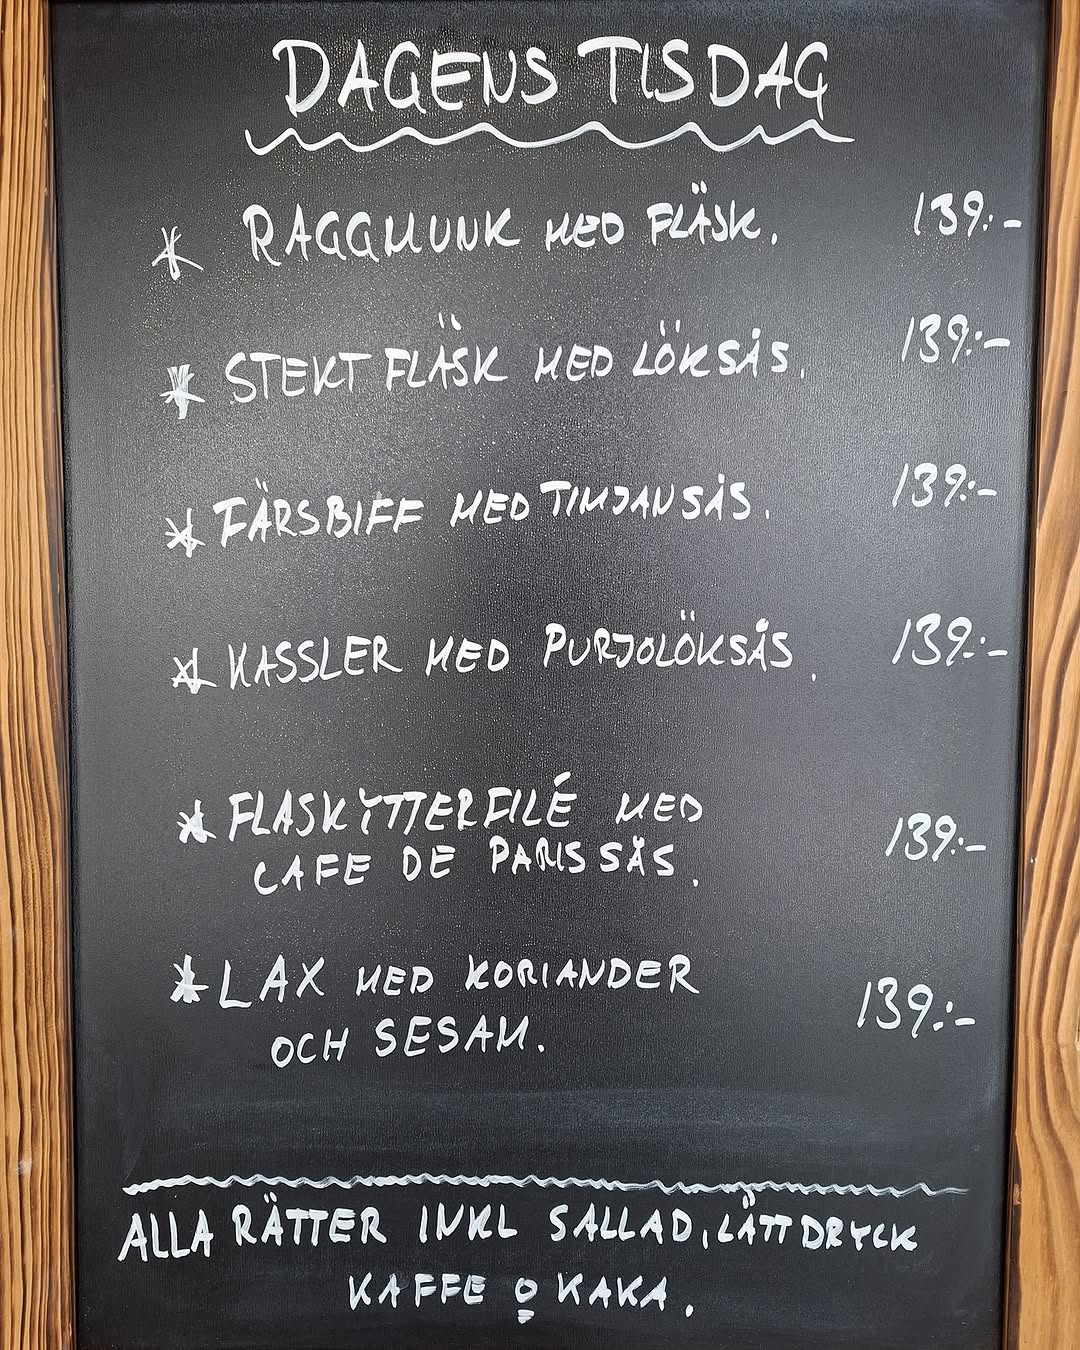 DAGENS TISDAG
* RAGGMUNK MED FLÄSK. 139:-
* STEKT FLÄSK MED LÖKSÅS. 139:-
* FÄRSBIFF MED TIMJANSÅS. 139:-
* KASSLER MED PURJOLÖKSÅS. 139:-
* FLASKYTTERFILÉ MED
CAFE DE PARISSÅS. 139:-
* LAX MED KORIANDER
OCH SESAM. 139:-
ALLA RÄTTER INKL SALLAD, LÄTTDRYCK
KAFFE O KAKA.